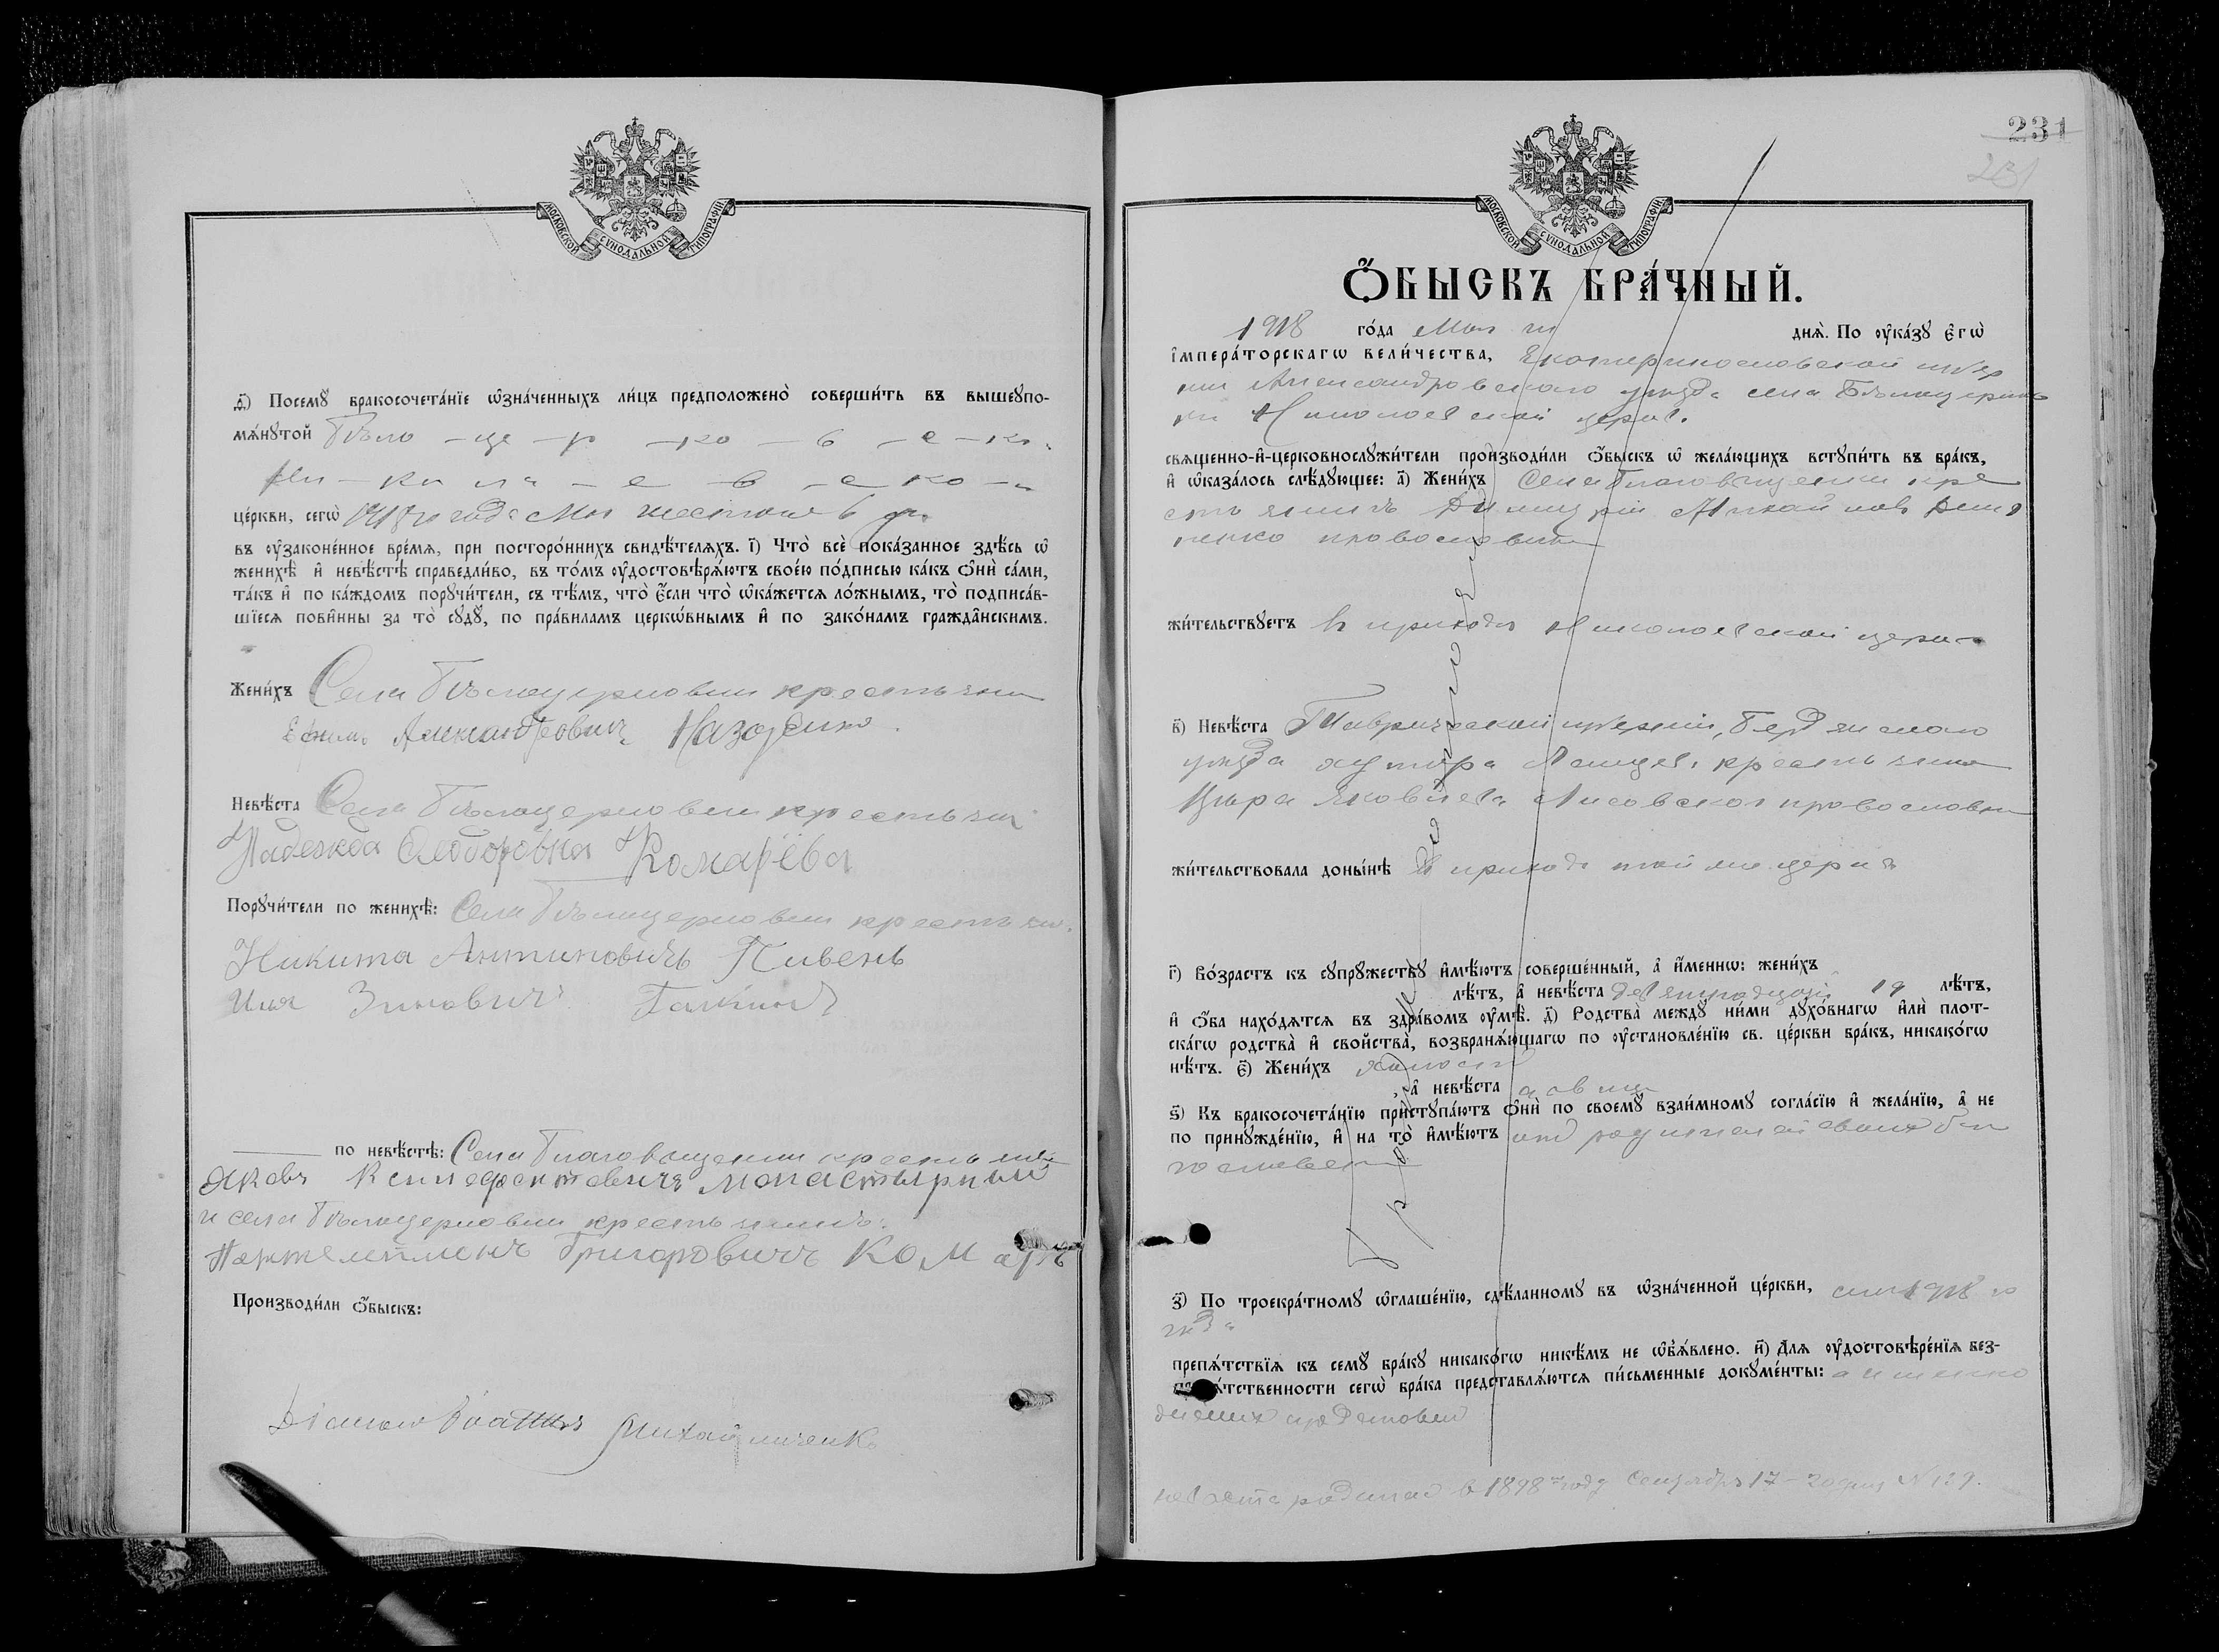 МОСКОВСКОЙ СѴНОДАЛЬНОЙ ТИПОГРАФІИ
ѳ҃) Посемꙋ̀ бракосочета́нїе ѡ҆зна́ченныхъ ли́цъ предположено̀ соверши́ть въ вышеꙋпо-
мѧ́нꙋтой Бѣло - це - р - ко - в - с - ко
Ни - ко ла - е - в - с ко -
це́ркви, сегѡ̀ 1918 го года Мая шестого 6 дня
въ ᲂу҆зако́нное вре́мѧ, при посторо́ннихъ свидѣ́телѧхъ. і҃) Что̀ всѐ пока́занное здѣ́сь ѡ҆
женихѣ̀ и҆ невѣ́стѣ справедли́во, въ то́мъ ᲂу҆достовѣрѧ́ютъ свое́ю по́дписью ка́къ ѻ҆нѝ са́ми,
та́къ и҆ по ка́ждомъ порꙋчи́тели, съ тѣ́мъ, что̀ є҆́сли что̀ ѡ҆ка́жетсѧ ло́жнымъ, то̀ подписа́в-
шїесѧ пови́нны за то̀ сꙋдꙋ̀, по пра́виламъ церкѡ́внымъ и҆ по зако́намъ гражда̑нскимъ.
Жени́хъ Села Бѣлоцерковки крестьянин
Ефимъ Александрович Назаренко.
Невѣ́ста Села Бѣлоцерковки крестьян
Надежда Феодоровна Комарёва
Порꙋчи́тели по женихѣ̀: Села Бѣлоцерковки крестьян.
Никита Антиповичъ Пивень
Илья Зиновичъ
по невѣ́стѣ: Села Благовѣщенки крестьянин
Яковъ Ксенофонтовичъ Монастырный
и села Бѣлоцерковки крестьянинъ:
Григоровичъ Комаръ
Производи́ли ѻ҆́быскъ:
Михайличенко
231
231
МОСКОВСКОЙ СѴНОДАЛЬНОЙ ТИПОГРАФІИ
Ѻ҆́БЫСКЪ БРА́ЧНЫЙ.
1918 го́да Мая днѧ̀. По ᲂу҆ка́зꙋ є҆гѡ̀
і҆мпера́торскагѡ вели́чества, Екатеринославской губер
нии Александровского уезда села Бѣлоцерков
ки Николаевской церкв.
свѧще́нно-и҆-церковнослꙋжи́тели производи́ли ѻ҆́быскъ ѡ҆ жела́ющихъ встꙋпи́ть въ бра́къ,
и҆ ѡ҆каза́лось слѣ́дꙋющее: а҃) Жени́хъ Села Благовѣщенки кре
стьянинъ Димитрій
православн
жи́тельствꙋетъ въ приходѣ Николаевской церкв
в҃) Невѣ́ста Таврической губерніи, Бердянского
уезда хутора крестьянка
Яковлева Лисовская православн
жи́тельствовала доны́нѣ въ приходѣ той же церкви
г҃) Во́зрастъ къ сꙋпрꙋ́жествꙋ и҆мѣ́ютъ соверше́нный, а҆ и҆́меннѡ: жени́хъ
лѣ́тъ, а҆ невѣ́ста девятнадцать 19 лѣ́тъ,
и҆ ѻ҆́ба нахо́дѧтсѧ въ здра́вомъ ᲂу҆мѣ̀. д҃) Родства̀ междꙋ̀ ни́ми дꙋхо́внагѡ и҆лѝ плот-
ска́гѡ родства̀ и҆ сво́йства̀, возбранѧ́ющагѡ по ᲂу҆становле́нїю св. це́ркви бра́къ, никако́гѡ
нѣ́тъ. є҃) Жени́хъ холост
, а҆ невѣ́ста девица
ѕ҃) Къ бракосочета́нїю пристꙋпа́ютъ ѻ҆нѝ по своемꙋ̀ взаи́мномꙋ согла́сїю и҆ жела́нїю, а҆ не
по принꙋжде́нїю, и҆ на то̀ и҆мѣ́ютъ от родителей своих бла
гословен
з҃) По троекра́тномꙋ ѡ҆глаше́нїю, сдѣ́ланномꙋ въ ѡ҆зна́ченной це́ркви, сего 1918 го
года
препѧ́тствїѧ къ семꙋ̀ бра́кꙋ никако́гѡ никѣ́мъ не ѡ҆б̾ѧ́влено. и҃) Длѧ ᲂу҆достовѣре́нїѧ без-
препѧ́тственности сегѡ̀ бра́ка представлѧ́ютсѧ пи́сьменные докꙋме́нты: а именно
невѣста родилас в 1898 году Сентября 17 - № 129.